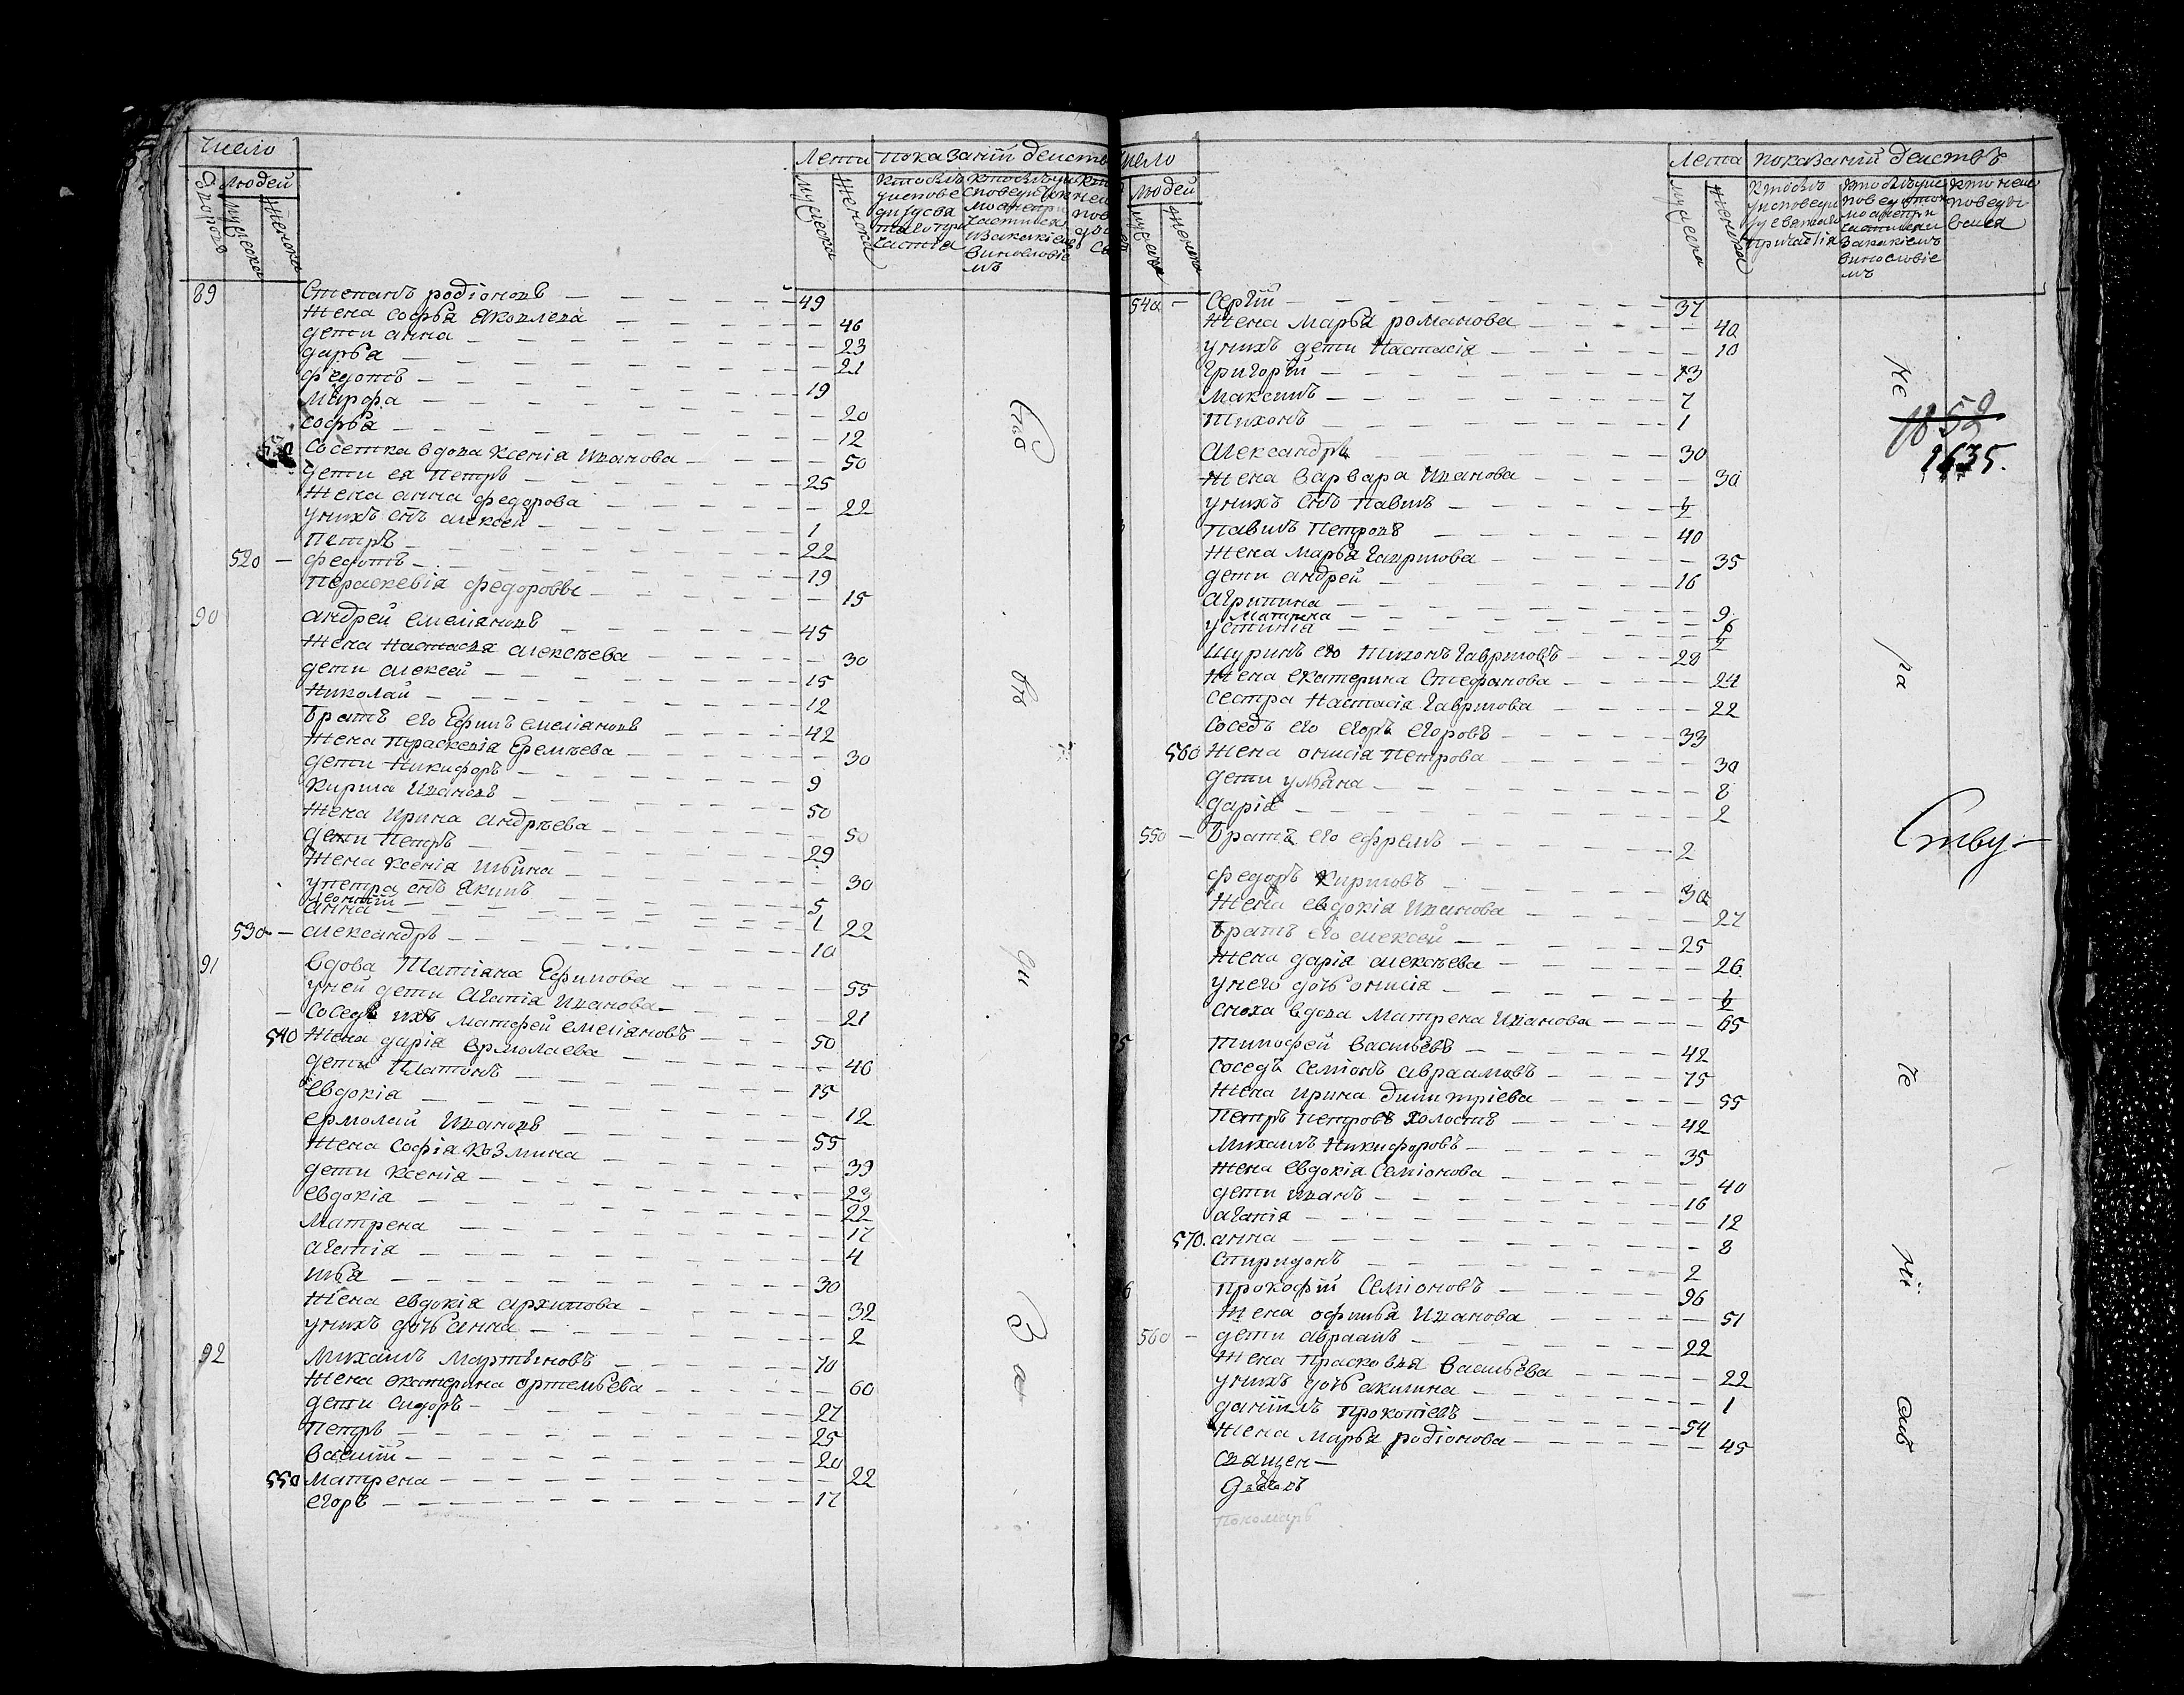 Число
Людей
Лета
показаний деиств
Мужеска
Женска
89 Степанъ родіоновъ 49
Жена софья Яковлева 46
дети анна 23
дарья 21
федотъ 19
Марфа 20
софья 12
Соседка вдова Ксенія Иванова 50
дети ея Петръ 25
Жена анна федорова 22
унихъ снъ алексеи 1
Петръ 22
520 федотъ 19
Параскевія федорова 15
90 андрей емеліановъ 45
Жена Настасья алексѣева 30
дети алексеи 15
Николаи 12
братъ его Ефимъ емеліановъ 42
Жена Праскевія Еремѣева 30
дети Никифоръ 9
Кирила Ивановъ 50
Жена Ирина андрѣева 50
дети Петръ 29
Жена Ксенія Ильина 30
упетра снъ Якимъ 5
Леонтий 1
анна 22
530 александръ 10
91 вдова Татіана Ефимова 55
уней дети Агапія Иванова 21
Соседъ ихъ Матфей емеліановъ 50
540 Жена дарія ермолаева 40
дети Платонъ 15
Евдокія 12
ермолаи Ивановъ 55
Жена Софія Козмина 39
дети Ксенія 23
евдокія 22
Матрена 17
агапія 4
илья 30
Жена евдокія архипова 32
унихъ дочь анна 2
92 Михаилъ Мартыновъ 70
Жена екатерина артемьева 60
дети сидоръ 27
Петръ 25
василій 20
550 Матрена 22
егоръ 17
бы
въ
ши
за
Число
Людей
Лета
показаний деиствъ
Мужеска
Женска
540 Сергій 37
Жена Марья романова 40
унихъ дети Настасія 10
Григорій 13
Максимъ 7
Тихонъ 1
Александръ 30
Жена варвара Иванова 30
унихъ снъ Павилъ 1/2
Павилъ Петровъ 40
Жена Марья Гаврилова 35
дети андрей 16
агрипина 9
Матрена 6
устинія 1/2
шуринъ его Тихонъ Гавриловъ 28
Жена екатерина Стефанова 24
сестра Настасія Гаврилова 22
Соседъ его егоръ егоровъ 33
560 Жена онисія Петрова 30
дети ульяна 8
дарія 2
550 братъ его ефремъ 2
федоръ Кириловъ 30
Жена евдокія Иванова 27
братъ его алексеи 25
Жена дарія алексѣева 26
унего дочь онисія 1/2
сноха вдова Матрена Иванова 65
Тимофей васильевъ 42
соседъ Семіонъ авраамовъ 75
Жена Ирина димитріева 55
Петръ Петровъ Холостъ 42
Михаилъ Никифоровъ 35
Жена Евдокія Семіонова 40
дети иванъ 16
агапія 12
570 анна 8
Спиридонъ 2
прокофій Семіоновъ 96
Жена офимья Иванова 51
560 дети авраамъ 22
Жена прасковья васильева 22
унихъ дочь акилина 1
даніилъ прокопіевъ 54
Жена Марья родіонова 45
священ
Дьяконъ
Пономарь
Не
1852
1635.
ра
Ству
че
ні